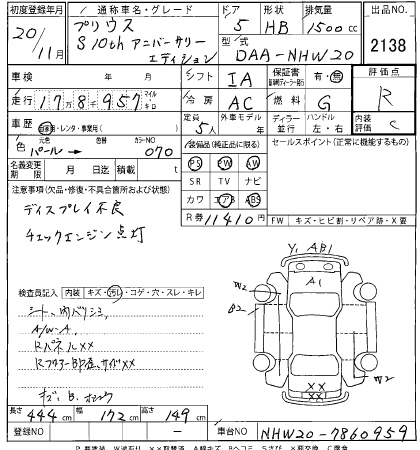 初度登録年月 通称車名・グレード ドア 形状 排気量 出品NO
20/11月 プリウス S 10th アニバーサリー エディション 5 HB 1500cc 2138
型式 DAA-NHW20
車検 年 月 シフト IA 保証書 有・無 評価点
走行 17万8千957 マイル キロ 冷房 AC 燃料 G R
車歴 自家用・レンタ・事業用( ) 定員 5人 外車モデル 年 ディーラー 並行 ハンドル 左・右 内装評価 C
色 元色 パール → 色替 カラーNO 070 装備品(純正品に限る) セールスポイント(正常に機能するもの)
名義変更期限 月 日 積載 t PS PW AW
注意事項(欠品・修復・不具合箇所および状態) SR TV ナビ
ディスプレイ不良 カワ エアB ABS
チェックエンジン点灯 R券 ¥11410円 FW キズ・ヒビ割・リペア跡・X要
Y, AB1
A1
W2
B2
検査員記入 内装 キズ・汚レ・コゲ・穴・スレ・キレ
A/W-A
Rパネル××
Rフロアー凹歪、サイド××
××
××
W2
長さ 444cm 幅 172cm 高さ 149cm
登録NO - 車台NO NHW20-7860959